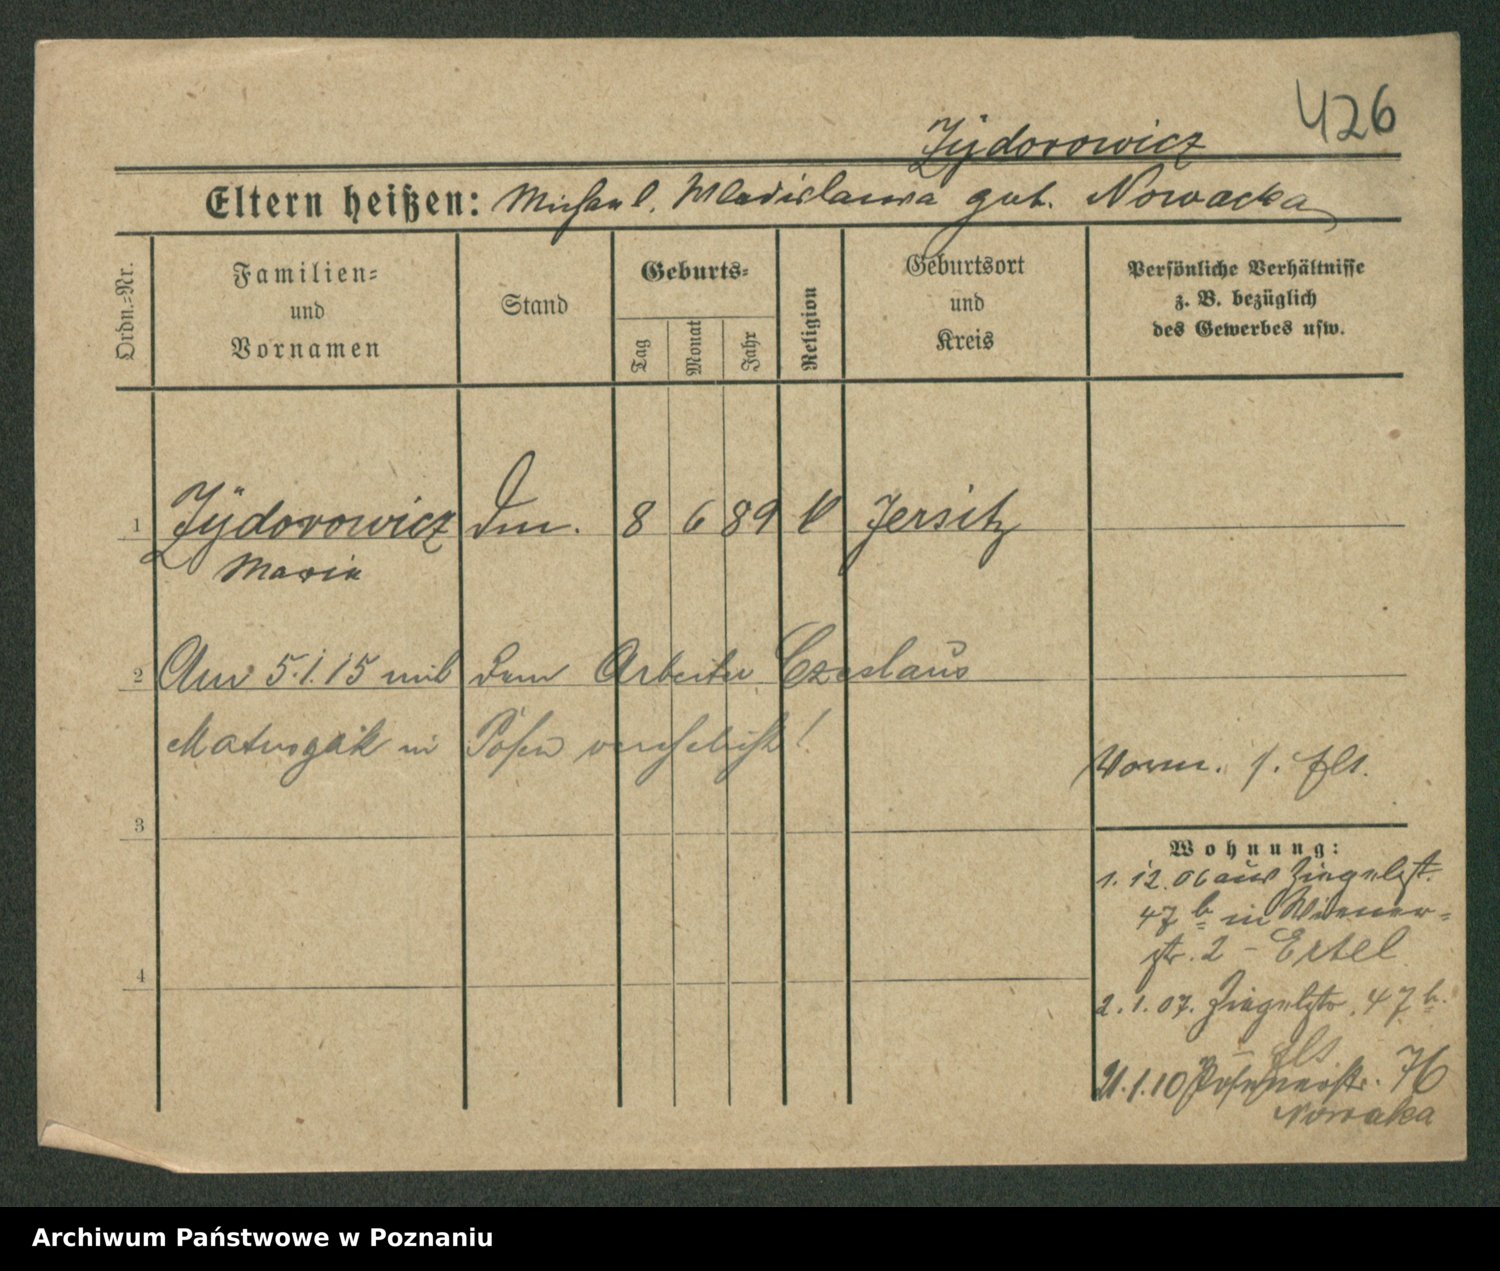 426
Zÿdorowicz
Eltern heißen: Michael. Wladislawa geb. Nowacka
Ordn.-Nr.
Familien-
und
Vornamen
Stand
Geburts-
Tag
Monat
Jahr
Religion
Geburtsort
und
Kreis
Persönliche Verhältnisse
z. B. bezüglich
des Gewerbes usw.
1 Zÿdorowicz 8 6 89 Jersitz
Maria
2 Am 5.1.15 mit dem Arbeiter Czeslaus
in Posen verehelicht!
Vorm. s. Elt.
3
Wohnung:
1. 12. 06 aus Ziegelstr.
47 b in Wiener-
str. 2 - Ertel
4
2. 1. 07. Ziegelstr. 47 b.
Els
.1.10 Posenerstr. 76
Nowaka
Archiwum Państwowe w Poznaniu